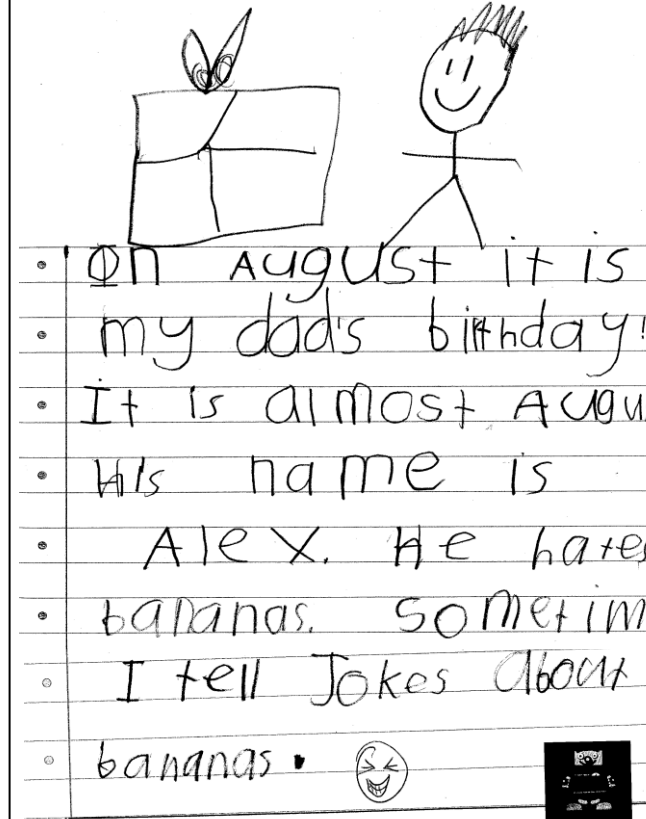 On August it is
my dad's birthday!
It is almost Augu
His name is
Alex. He hates
bananas. Sometim
I tell Jokes About
bananas.